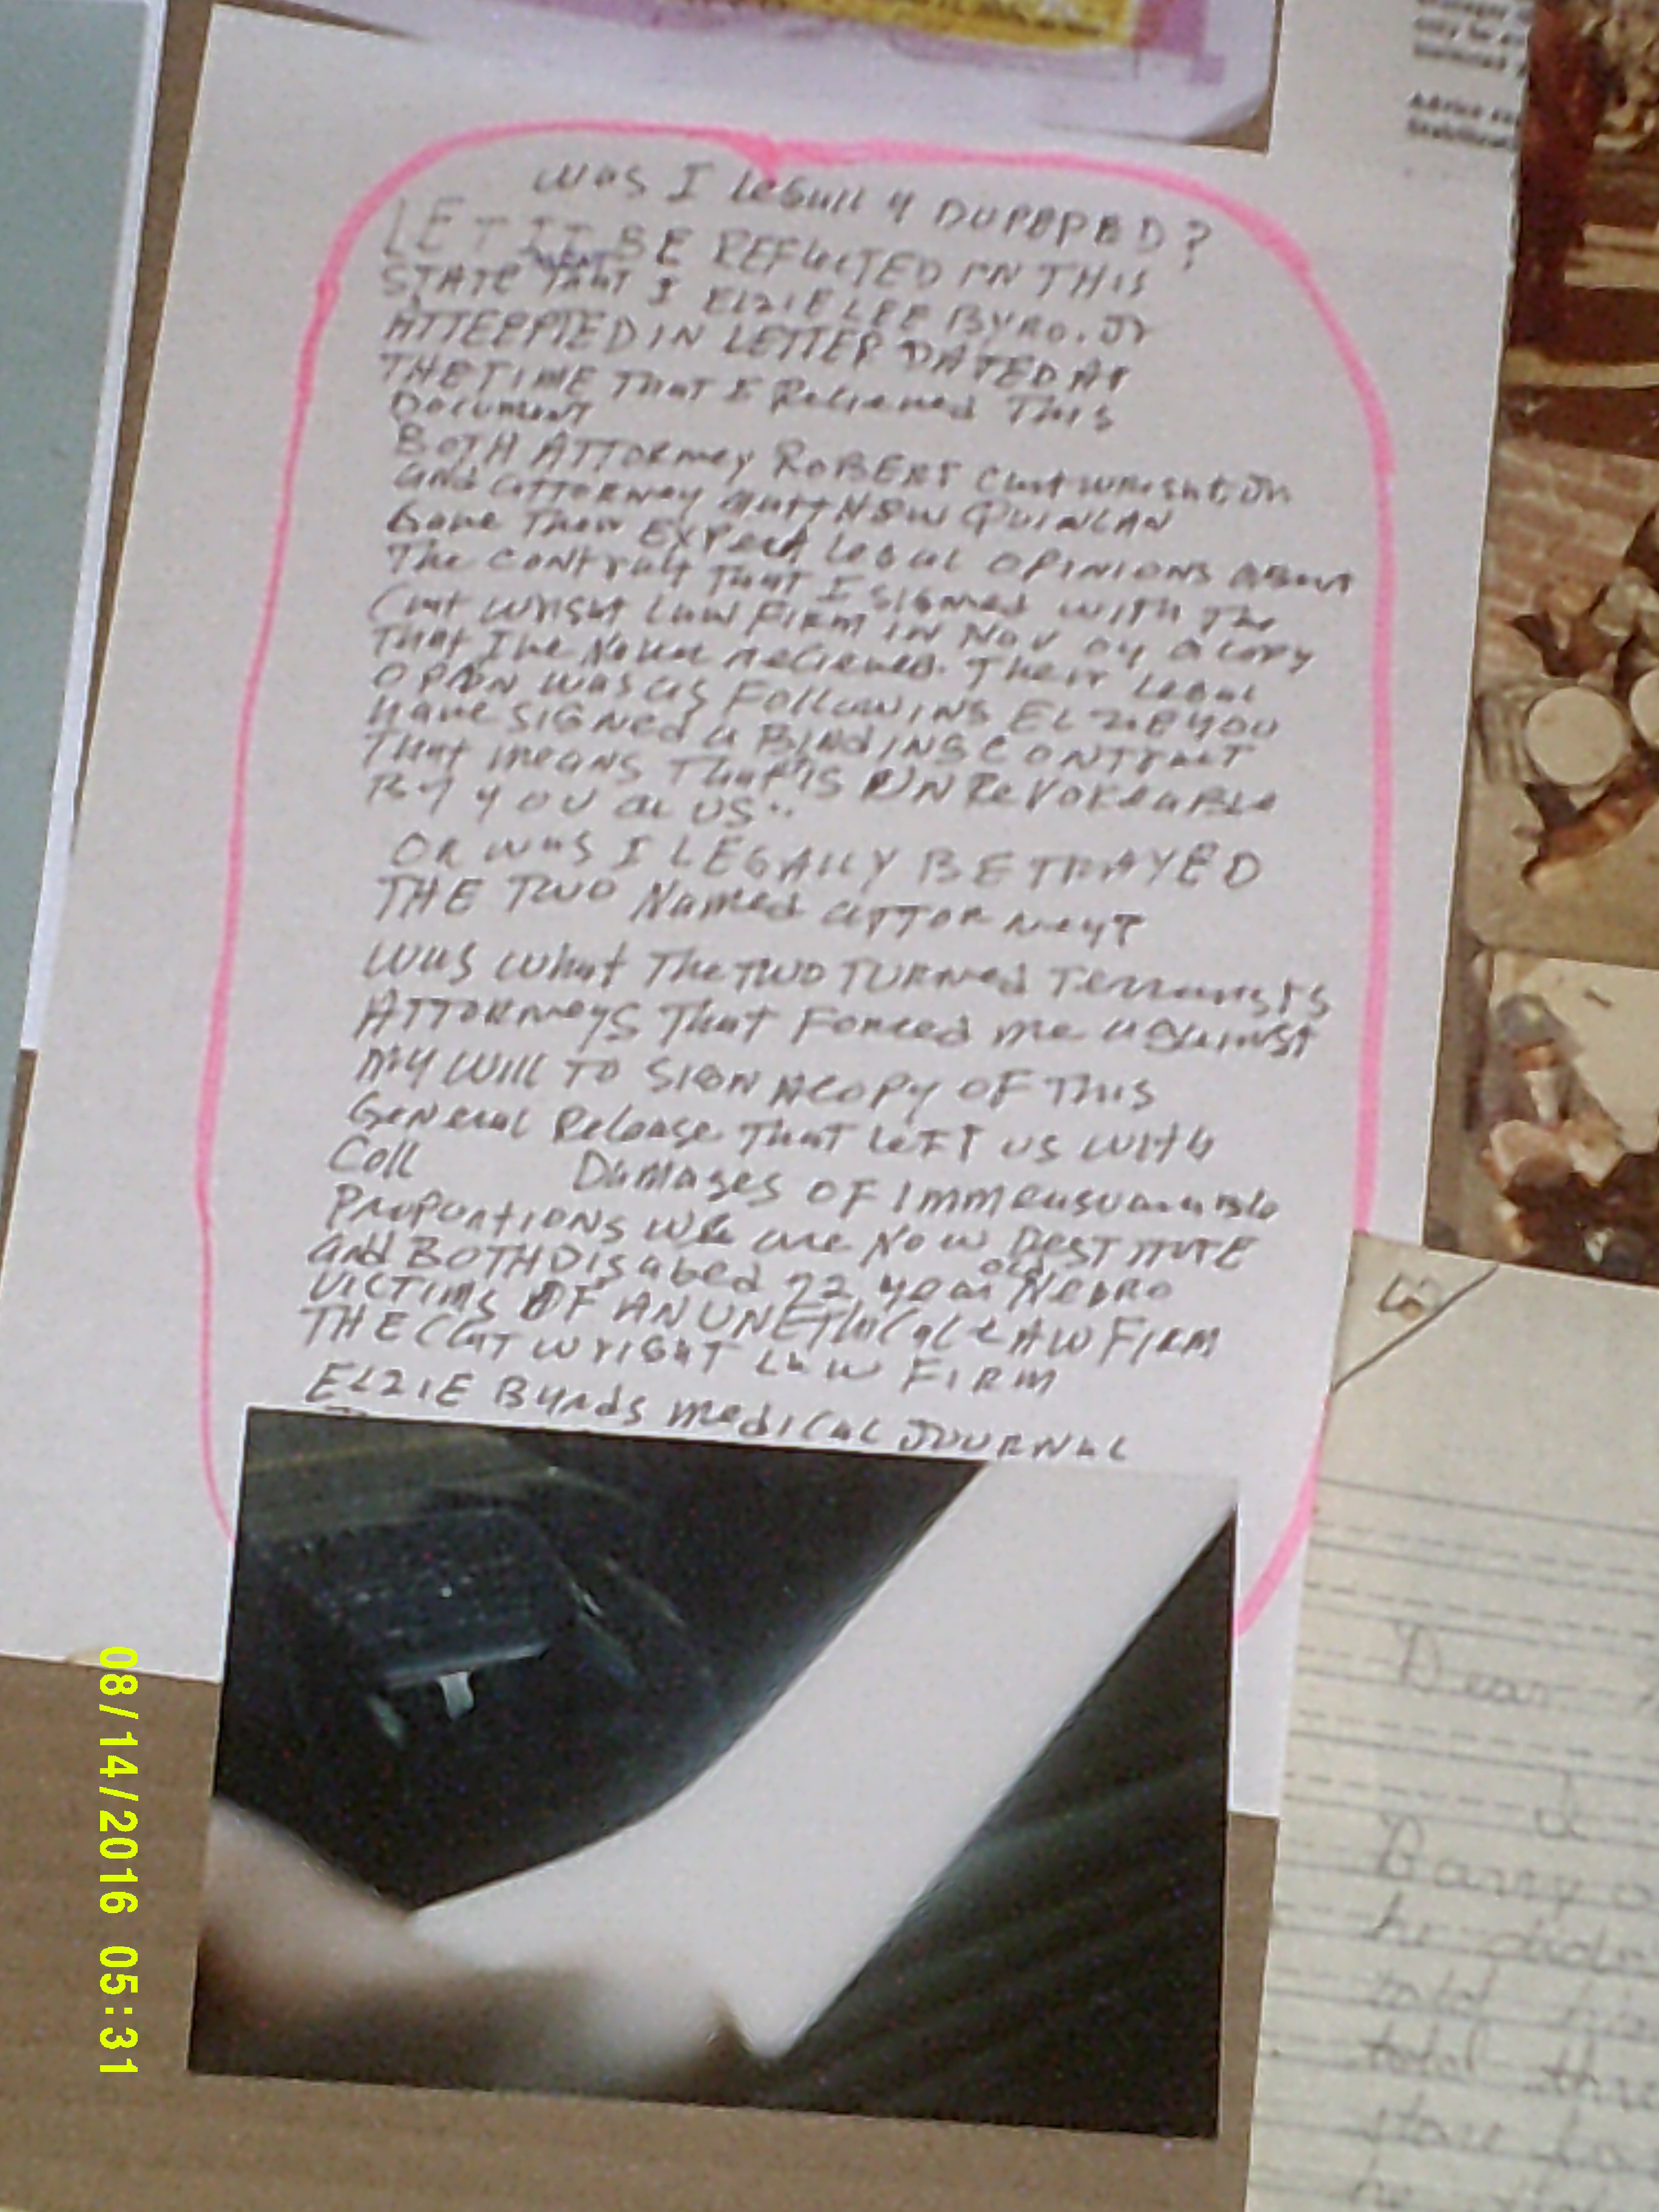 WAS I LEGALLY DUPEPED?
LET IT BE REFLICTED IN THIS
STATEMENT THAT I ELZIE LEE BYRD. Jr
ATTEEPTED IN LETTER DATED At
THE TIME THAT I Recieved This
Document
BOTH ATTORney ROBERT Cartwright Jr
and attorney MattHEW QUINLAN
Gave Their EXPert Legal OPINIONS About
The contract That I signed WITH The
Cart wright Law FIRM IN Nov 04 a copy
That I've Never recieved. Their Legal
OPION was as FollowINS ELZIE you
Have SIGNed a BINdING CONTract
That means That's IS UNReVOKeaBLe
By you or us..
OR was I LEGALLY BETRAYED
THE TWO Named attorney?
was what The TWO TURNed Terrorists
ATTORneys That Forced me against
my WILL TO SIGN A COPY OF This
General Release That LEFT US WITH
Coll Damages OF Immeasurable
Proportions We are Now DESTITUTE
and BOTH Disabed 72 year old Negro
VICTIMS OF AN UNEThical LAW FIRM
THE Cart wright Law FIRM
ELZIE Byrds Medical JOURNAL
Dear
I
Barry a
he didn
told
total thre
08/14/2016 05:31